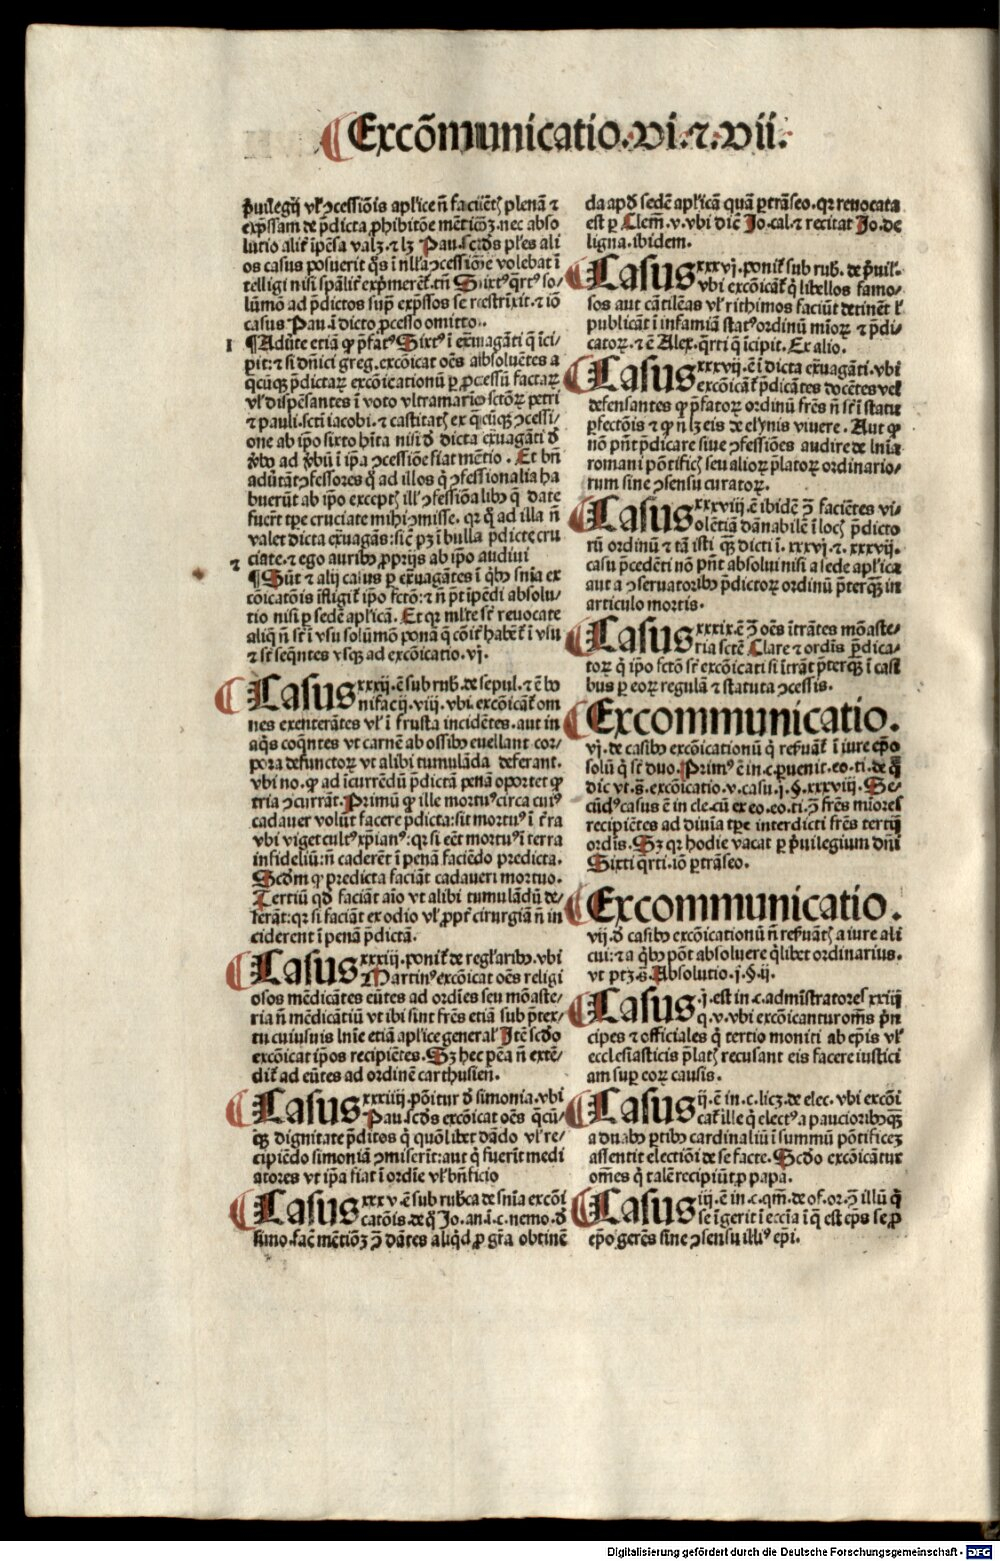 Excõmunicatio.vi.⁊.vii.
p̃uilegij vl̕ ꝯcessiõis apl̕ice ñ faciẽtꝭ plenã ⁊
exp̃ssam de p̃dicta ꝓhibitõe mẽtiõꝫ.nec abso
lutio alit̕ ip̃ensa valꝫ.⁊ lꝫ Pau.scd̕s pl̕es ali
os casus posuerit q̃s ĩ nll̕a ꝯcessiõe volebat ĩ
telligi nisi sp̃alit̕ exp̃merẽt̕.tñ Sixtꝰ q̕rtꝰ so/
lũmõ ad p̃dictos sup̃ exp̃ssos se restrixit.⁊ iõ
casus Pau.ĩ dicto ꝓcesso omitto.
1 ¶Adũte etiã ꝙ p̃fatꝰ Sixtꝰ ĩ exũagãti q̃ ĩci/
pit:⁊ si dñici greg.excõicat oẽs absoluẽtes a
q̕cũqꝫ p̃dictaꝝ excõicationũ ꝑ ꝓcessũ factaꝝ
vl̕ dispẽsantes ĩ voto vltramarino sctõꝝ petri
⁊ pauli.scti iacobi.⁊ castitatꝭ ex q̕cũqꝫ ꝯcessi/
one ab ip̃o sixto hĩta nisi d̕ dicta exũagãti d̕
ṽbo ad ṽbũ ĩ ip̃a ꝯcessiõe fiat mẽtio. Et bñ
adũtãt ꝯfessores q̕ ad illos q̕ ꝯfessionalia ha
buerũt ab ip̃o exceptꝭ ill̕ ꝯfessiõalibꝰ q̃ date
fuer̃t tp̃e cruciate mihi ꝯmisse. qꝛ q̕ ad illa ñ
valet dicta exũagãs:sic̃ pꝫ ĩ bulla p̃dicte cru
2 ciate.⁊ ego auribꝰ ꝓprijs ab ip̃o audiui
¶Sũt ⁊ alij casus ꝑ exũagãtes ĩ q̕bꝰ snĩa ex
cõicatõis ĩfligit̕ ip̃o fctõ:⁊ ñ p̃t ip̃edi absolu/
tio nisi ꝑ sedẽ apl̕icã. Et qꝛ ml̕te st̃ reuocate
aliq̃ ñ st̃ ĩ vsu solũmõ ponã q̃ cõit̕ habẽt̕ ĩ vsu
⁊ st̃ seq̃ntes vsqꝫ ad excõicatio.vj.
Casus xxxij.ẽ sub rub̕.de sepul.⁊ ẽ bo
nifacij.viij.vbi.excõicãt̕ om
nes exenterãtes vl̕ ĩ frusta incidẽtes.aut in
aq̕s coq̃ntes vt carnẽ ab ossibꝰ euellant cor/
pora defunctoꝝ vt alibi tumulãda deferant.
vbi no.ꝙ ad ĩcurrẽdũ p̃dictã penã oportet ꝙ
tria ꝯcurrãt.Primũ ꝙ ille mortuꝰ circa cuiꝰ
cadauer volũt facere p̃dicta:sit mortuꝰ ĩ t̃ra
vbi viget cultꝰ xp̃ianꝰ:qꝛ si eẽt mortuꝰ ĩ terra
infideliũ:ñ caderẽt ĩ penã faciẽdo predicta.
Scd̕m ꝙ predicta faciãt cadaueri mortuo.
Tertiũ qd̕ faciãt aĩo vt alibi tumulãdũ de/
ferãt:qꝛ si faciãt ex odio vl̕ ꝓpt̕ cirurgiã ñ in
ciderent ĩ penã p̃dictã.
Casus xxxiij.ponit̕ de regl̕aribꝰ.vbi
Martinꝰ excõicat oẽs religi
osos mẽdicãtes eũtes ad ordĩes seu mõaste/
ria ñ mẽdicãtiũ vt ibi sint frẽs etiã sub p̃tex/
tu cuiusuis lnĩe etiã apl̕ice general̕ Itẽ scd̕o
excõicat ip̃os recipiẽtes.Sꝫ hec pẽa ñ extẽ/
dit̕ ad eũtes ad ordinẽ carthusien.
Casus xxxiiij.põitur d̕ simonia.vbi
Pau.scd̕s excõicat oẽs q̕cũ/
qꝫ dignitate p̃ditos q̕ quõlibet dãdo vl̕ re/
cipiẽdo simoniã ꝯmiserĩt:aut q̕ fuerĩt medi
atores vt ip̃a fiat ĩ ordĩe vl̕ bñficio
Casus xxxv.ẽ sub rub̕ca de snĩa excõi
catõis de q̃ Jo.an.ĩ.c.nemo.d̕
simo.fac̃ mẽtiõꝫ ꝯ̃ dãtes aliq̕d ꝓ gr̃a obtinẽ
da apd̕ sedẽ apl̕icã quã ꝑtrãseo.qꝛ reuocata
est ꝑ Clem̃.v.vbi diẽ Jo.cal.⁊ recitat Jo.de
ligna.ibidem.
Casus xxxvj.ponit̕ sub rub̕. de p̃uil̕.
vbi excõicãt̕ q̕ libellos famo/
sos aut cãtilẽas vl̕ rithimos faciũt detinẽt l̕
publicãt ĩ infamiã statꝰ ordinũ mĩoꝝ ⁊ p̃di/
catoꝝ.⁊ ẽ Alex.q̕rti q̃ ĩcipit. Ex alio.
Casus xxxvij.ẽ ĩ dicta exũagãti.vbi
excõicãt̕ p̃dicãtes docẽtes vel
defensantes ꝙ p̃fatoꝝ ordinũ frẽs ñ st̃ ĩ statu
ꝑfectõis ⁊ ꝙ ñ lꝫ eis de elynis viuere. Aut ꝙ
nõ pñt p̃dicare siue ꝯfessiões audire de lnĩa
romani põtificꝭ seu alioꝝ p̃latoꝝ ordinario/
rum sine ꝯsensu curatoꝝ.
Casus xxxviij.ẽ ibidẽ ꝯ̃ faciẽtes vi/
olẽtiã dãnabilẽ ĩ locꝭ p̃dicto
rũ ordinũ ⁊ tã isti qꝫ dicti ĩ. xxxvj.⁊. xxxvij.
casu p̃cedẽti nõ pñt absolui nisi a sede apl̕ica
aut a ꝯseruatoribꝰ p̃dictoꝝ ordinũ p̃terqꝫ in
articulo mortis.
Casus xxxix.ẽ ꝯ̃ oẽs ĩtrãtes mõaste/
ria sctẽ Clare ⁊ ordĩs p̃dica/
toꝝ q̕ ip̃o fctõ st̃ excõicati si ĩtrãt p̃terqꝫ ĩ casi
bus ꝑ eoꝝ regulã ⁊ statuta ꝯcessis.
Excommunicatio.
vj.de casibꝰ excõicationũ q̃ reẽuãt̕ ĩ iure ep̃o
solũ q̃ st̃ duo.Primꝰ ẽ in.c.ꝑuenit.eo.ti.de q̃
dic vt.s̃.excõicatio.v.casu.j.§.xxxviij. Se/
cũdꝰ casus ẽ in cle.cũ ex eo.eo.ti.ꝯ̃ frẽs mĩores
recipiẽtes ad diuĩa tp̃e interdicti frẽs tertij
ordĩs.Sꝫ qꝛ hodie vacat ꝑ p̃uilegium dñi
Sixti q̕rti.iõ ꝑtrãseo.
Excommunicatio.
vij.d̕ casibꝰ excõicationũ ñ reẽuãtꝭ a iure ali
cui:⁊ a q̕bꝰ põt absoluere q̕libet ordinarius.
vt ptꝫ.s̃.Absolutio.j.§.ij.
Casus j.est in.c.administratores xxiij
q.v.vbi excõicantur oñs p̃n
cipes ⁊ officiales q̕ tertio moniti ab ep̃is vl̕
ecclesiasticis p̃latꝭ recusant eis facere iustici
am sup̃ eoꝝ causis.
Casus ij.ẽ in.c.licꝫ.de elec.vbi excõi
cat̕ ille q̕ electꝰ a pauciõribꝰ qꝫ
a duabꝰ ꝑtibꝰ cardinaliũ ĩ summũ põtificeꝫ
assentit electiõi de se facte.Scd̕o excõicãtur
om̃es q̕ talẽ recipiũt ꝑ papa.
Casus iij.ẽ in.c.qm̃.de of.or.ꝯ̃ illũ q̕
se ĩgerit ĩ eccĩa ĩ q̃ est ep̃s se ꝓ
ep̃o gerẽs sine ꝯsensu illiꝰ ep̃i.
Digitalisierung gefördert durch die Deutsche Forschungsgemeinschaft - DFG